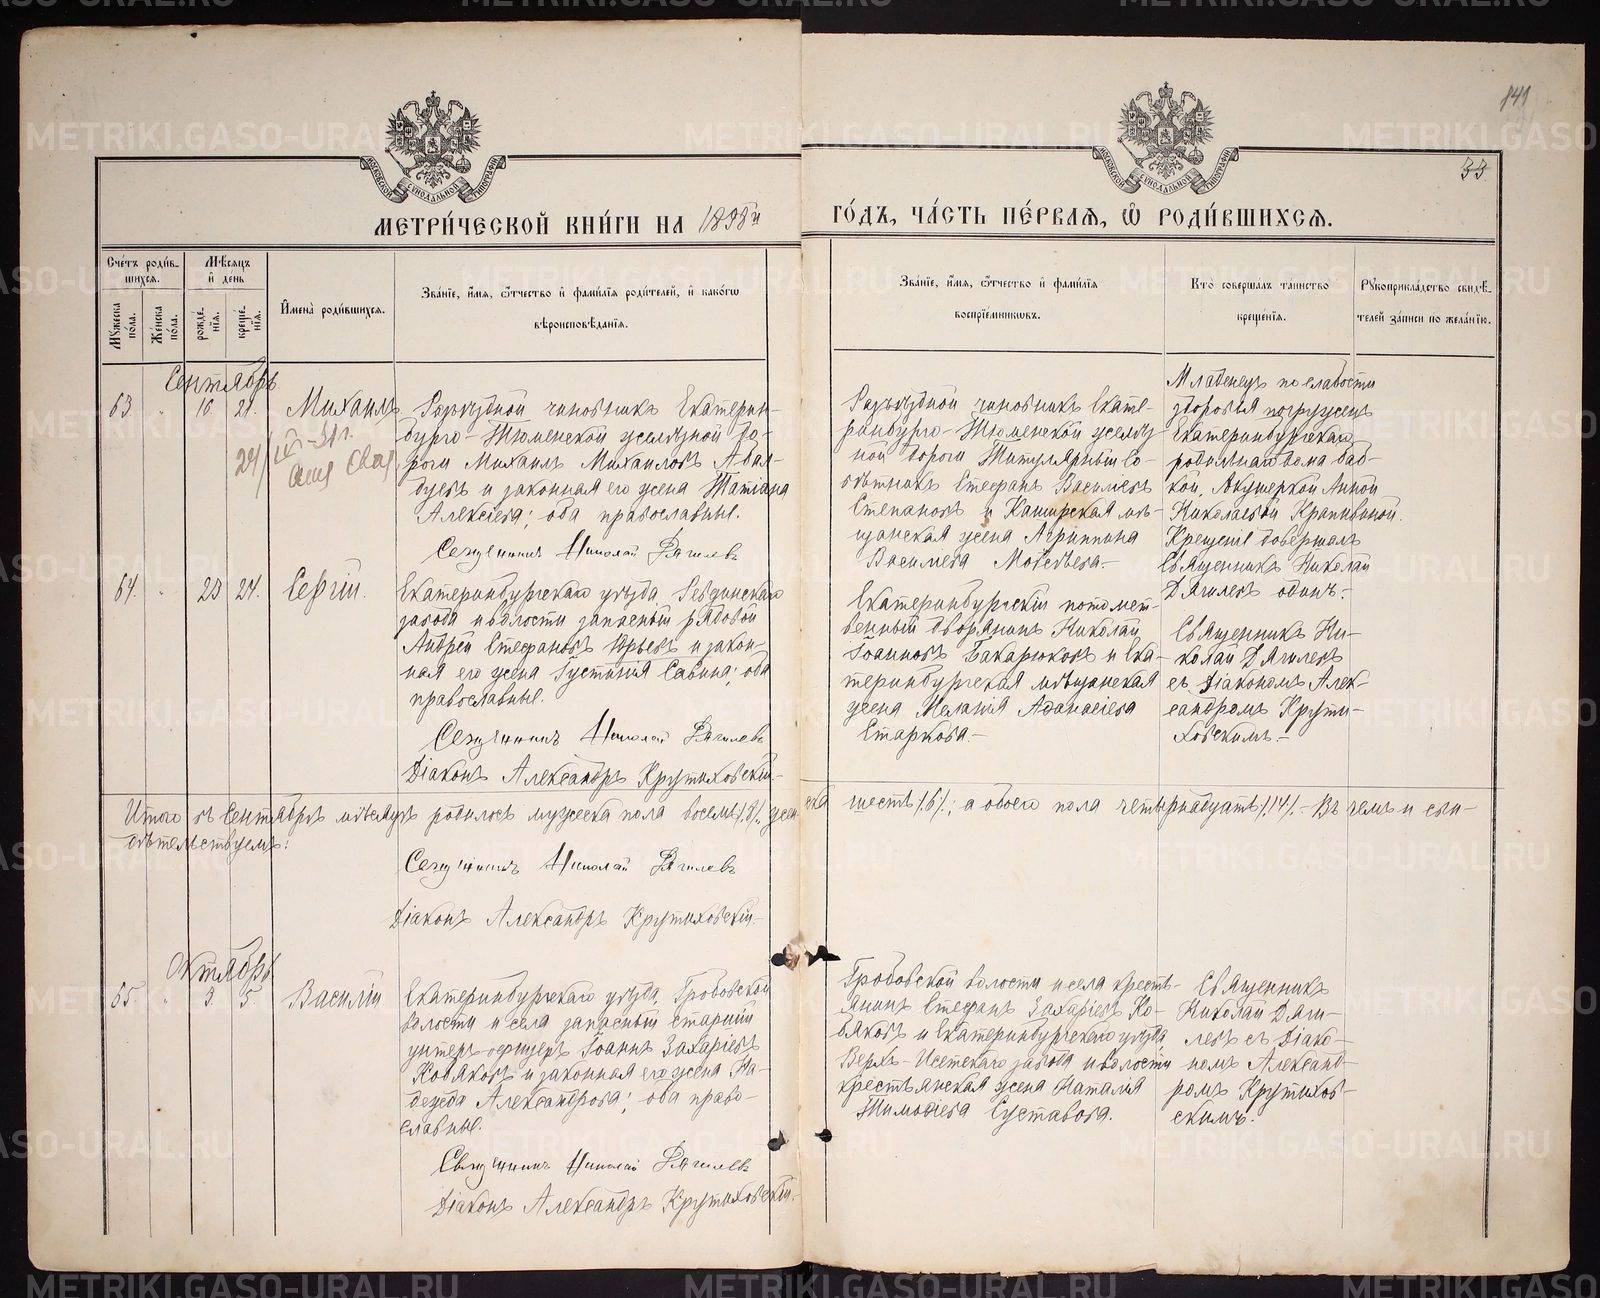 141
33
МЕТРИ́ЧЕСКОЙ КНИ́ГИ НА 1898й
ГО́ДЪ, ЧА́СТЬ ПЕ́РВАЯ, Ѿ РОДИ́ВШИХСЯ.
Сче́тъ роди́в-
шихся.
Мѣ́сяцъ
и҆ де́нь
Му́жеска
по́ла.
Же́нска
по́ла.
рожде́-
нїѧ.
креще́-
нїѧ.
И҆мена̀ роди́вшихся.
Зва́нїе, и҆́мѧ, ѻ҆́тчество и҆ фами́лїѧ роди́телей, и҆ како́гѡ
вѣроисповѣ́данїѧ.
Зва́нїе, и҆́мѧ, ѻ҆́тчество и҆ фами́лїѧ
воспрїе́мникѡвъ.
Кто̀ соверша́лъ та́инство
креще́нїѧ.
Рꙋкоприкла́дство свидѣ́-
телей за́писи по жела́нїю.
Сентябрь
63. " 16. 21. Михаилъ
Разъѣздной чиновникъ Екатерин-
бурго-Тюменской желѣзной до-
роги Михаилъ Михаиловъ
и законная его жена Татіана
Алексіева; оба православные.
Священникъ Николай Дягилевъ
Разъѣздной чиновникъ Екате-
ринбурго-Тюменской желѣз
ной дороги Титулярный Со-
вѣтникъ Стефанъ Васильевъ
Степановъ и Каширская мѣ-
щанская жена Агриппина
Васильева Мотовьева.-
Младенецъ по слабости
здоровья погруженъ
Екатеринбургскаго
родильнаго дома баб-
кой, Акушеркой Анной
Николаевой Крапивиной.
Крещеніе довершалъ
Священникъ Николай
Дягилевъ одинъ.-
64. " 23 24. Сергій.
Екатеринбургскаго уѣзда, Ревдинскаго
завода и волости запасный рядовой
Андрей Стефановъ Юрьевъ и закон-
ная его жена Іустинія Савина; оба
православные.
Священникъ Николай Дягилевъ
Діаконъ Александръ Крутиховскій-
Екатеринбургскій потомст-
венный дворянинъ Николай
Іоанновъ Бакарюковъ и Ека-
теринбургская мѣщанская
жена Меланія Аѳанасіева
Старкова.-
Священникъ Ни-
колай Дягилевъ
съ Діакономъ Алек-
сандромъ Крути-
ховскимъ.-
Итого въ Сентябрѣ мѣсяцѣ родилось мужеска пола восемь/8/, женска шесть/6/; а обоего пола четырнадцать/14/.- Въ чемъ и сви-
дѣтельствуемъ:
Священникъ Николай Дягилевъ
Діаконъ Александръ Крутиховскій.-
Октябрь
65. " 3. 5. Василій
Екатеринбургскаго уѣзда, Гробовской
волости и села запасный старшій
унтеръ-офицеръ Іоаннъ Захаріевъ
Кобяковъ и законная его жена На-
дежда Александрова; оба право-
славные.
Священникъ Николай Дягилевъ
Діаконъ Александръ Крутиховскій.-
Гробовской волости и села кресть-
янинъ Стефанъ Захаріевъ Ко-
бяковъ и Екатеринбургскаго уѣзда,
Верхъ-Исетскаго завода и волости
крестьянская жена Наталія
Тимоѳіева Суставова.
Священникъ
Николай Дяги-
левъ съ Діако-
номъ Александ-
ромъ Крутихов-
скимъ.
METRIKI.GASO-URAL.RU